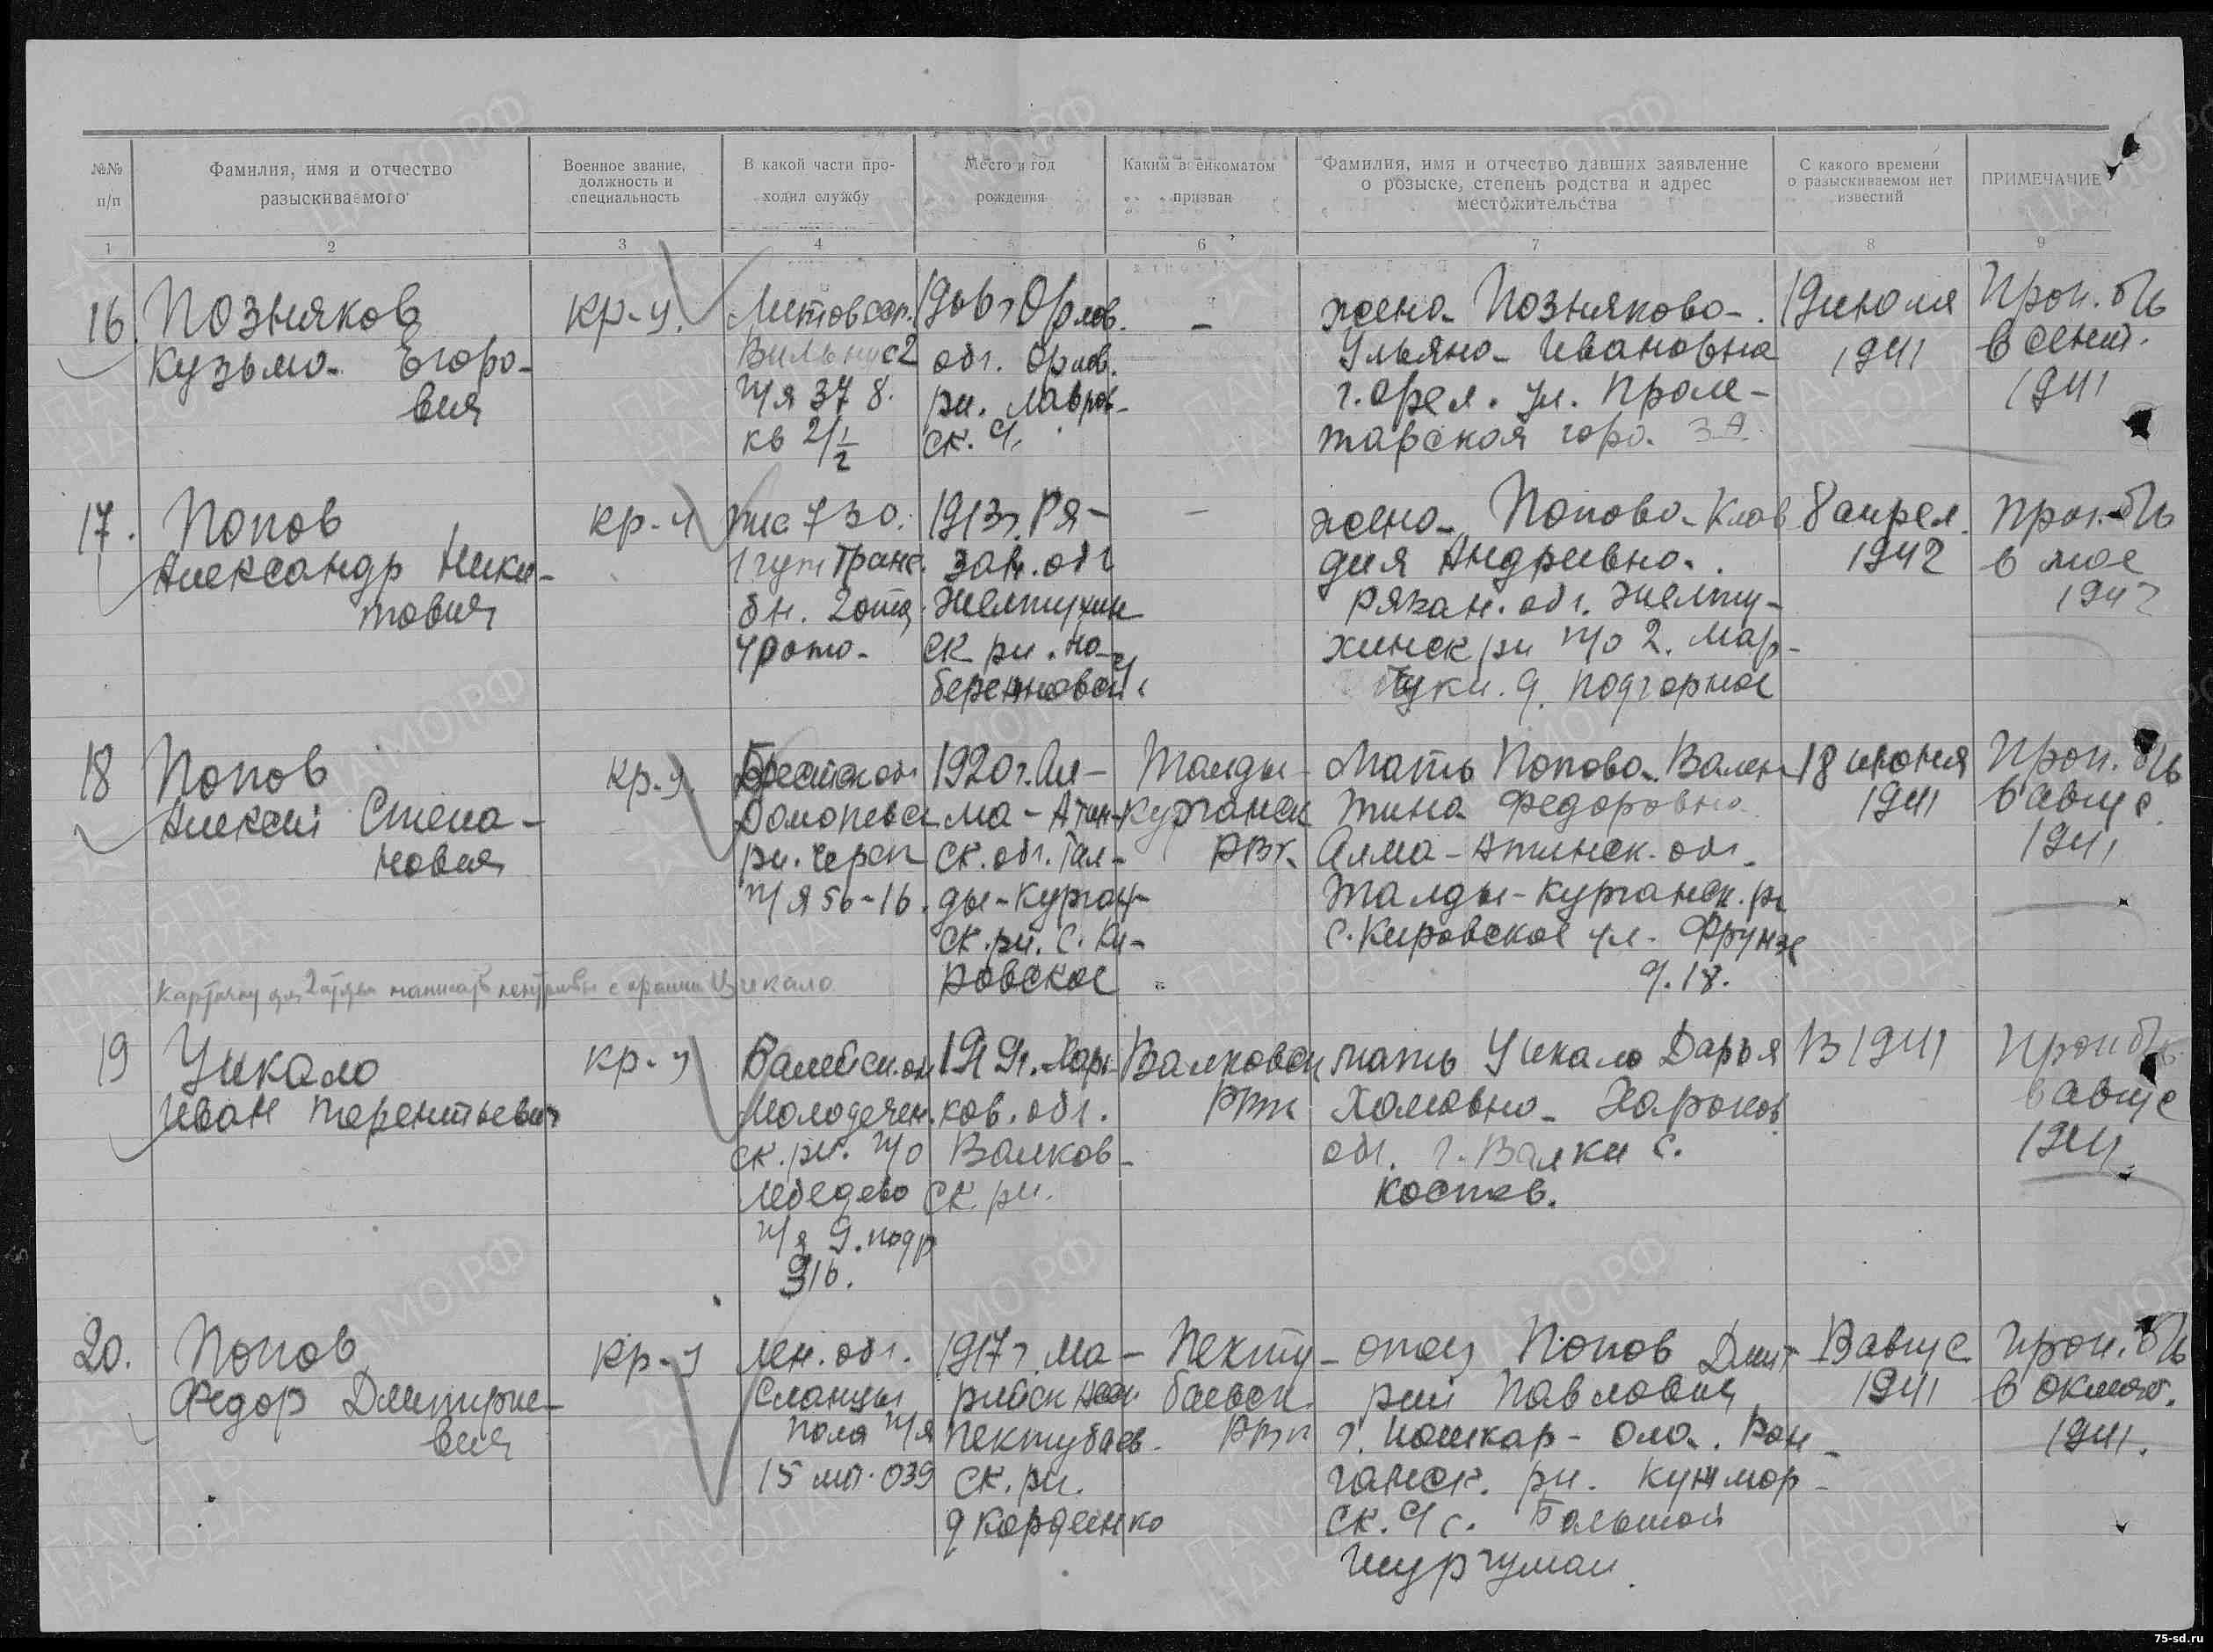 №№ п/п
Фамилия, имя и отчество разыскиваемого
Военное звание, должность и специальность
В какой части проходил службу
Место и год рождения
Каким военкоматом призван
Фамилия, имя и отчество давших заявление о розыске, степень родства и адрес местожительства
С какого времени о разыскиваемом нет известий
ПРИМЕЧАНИЕ
1 2 3 4 5 6 7 8 9
16. Позняков
Кузьма Егоро-
вич
кр-ц.
Литовская
Вильнюс 2
п/я 378.
кв 2/1/2
1906г Орлов.
обл. Орлов.
рн. Лавров-
ск.
–
жена Познякова
Ульяна Ивановна
г. Орел. ул. Проле-
тарская гора
19 июля
1941
Проп. б/в
в сент.
1941
17. Попов
Александр Ники-
тович
кр-ц
ппс 730.
бн.
1913г. Ря-
зан. обл
Желтухин
ск рн.
–
жена Попова Клав
дия Андреевна.
Рязан. обл. Желту-
хинск рн п/о 2.
д. Подгорное
8 апрел.
1942
Проп. б/в
в мае
1942
18 Попов
Алексей Степа-
нович
кр-ц.
Брестская
рн.
п/я 56-16.
1920г. Ал-
ма-Атин-
ск. обл. Тал-
ды-Курган-
ск. рн. с. Ки-
ровское
Талды-
Курганск
РВК
Мать Попова Вален
тина Федоровна
Алма-Атинск. обл.
Талды-Курганск. рн
с. Кировское ул. Фрунзе
д. 18.
18 июня
1941
Проп. б/в
в авгус.
1941
Цикало
19 Цикало
Иван Терентьевич
кр-ц
Молодечен.
ск. рн. п/о
Лебедево
п/я 9. подр
916.
1919г. Харь-
ков. обл.
Валков-
ск. рн.
Валковск
РВК
мать Цикало Дарья
Харьков
обл. г. Валки с.
Костев.
В 1941
Проп б/в.
в авгус
1941.
20. Попов
Федор Дмитрие-
вич
кр-ц
Лен. обл.
Сланцы
п/я
15 лит. 039
1917г. Ма-
рийск
Пектубаев-
ск. рн.
Пекту-
баевск.
РВК
отец Попов Дмит
рий Павлович
г. Йошкар-Ола.
рн. Кужмар-
ск. с. Большой
В авгус
1941
Проп. б/в
в октяб.
1941.
ЦАМО РФ
ПАМЯТЬ НАРОДА
75-sd.ru